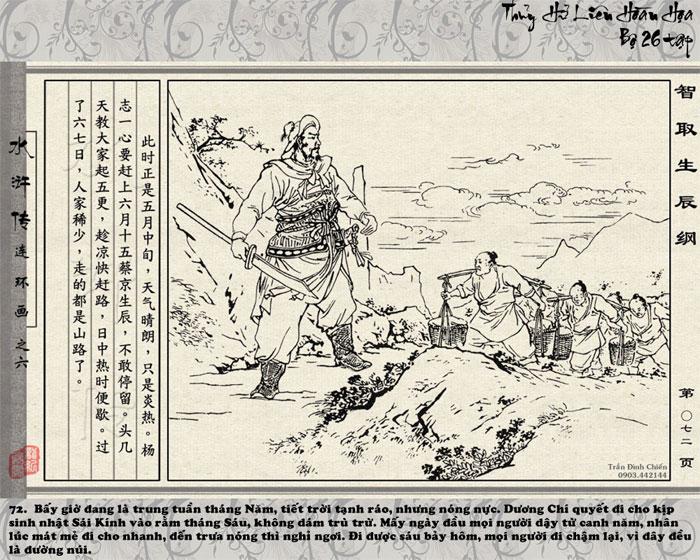 Thủy Hử Liên Hoàn Họa
Bộ 26 tập
智取生辰纲
第〇七二页
此时正是五月中旬，天气晴朗，只是炎热。杨
志一心要赶上六月十五蔡京生辰，不敢停留。头几
天教大家起五更，趁凉快赶路，日中热时便歇。过
了六七日，人家稀少，走的都是山路了。
水浒传连环画之六
Trần Đình Chiến
0903.442144
72. Bấy giờ đang là trung tuần tháng Năm, tiết trời tạnh ráo, nhưng nóng nực. Dương Chí quyết đi cho kịp
sinh nhật Sái Kinh vào rằm tháng Sáu, không dám trù trừ. Mấy ngày đầu mọi người dậy từ canh năm, nhân
lúc mát mẻ đi cho nhanh, đến trưa nóng thì nghỉ ngơi. Đi được sáu bảy hôm, mọi người đi chậm lại, vì đây đều
là đường núi.